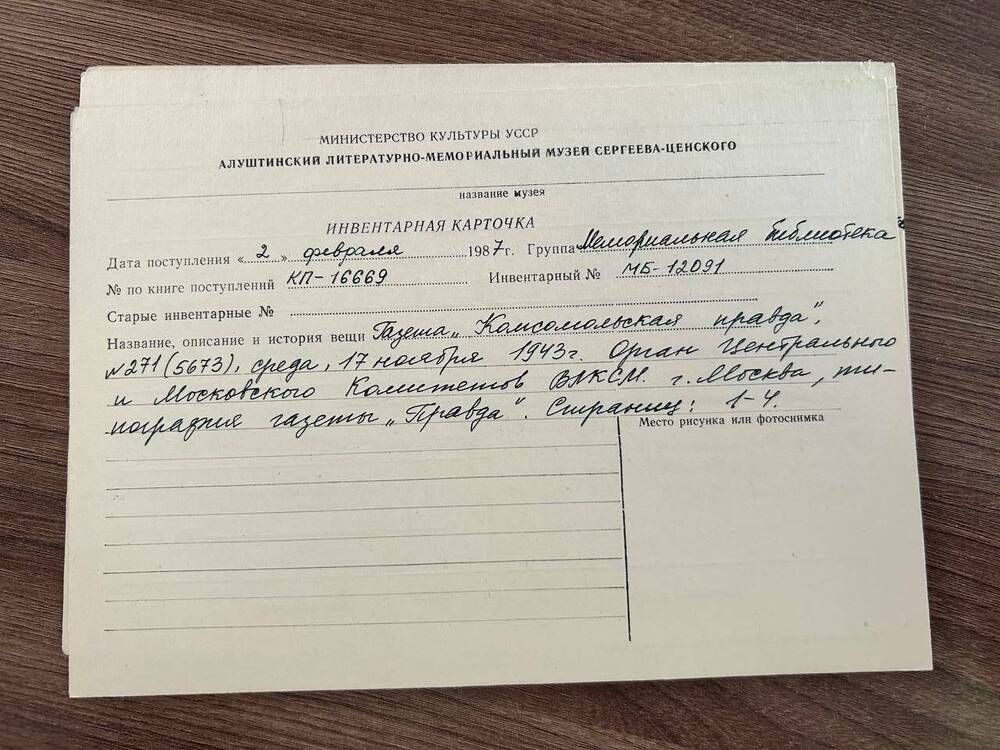 МИНИСТЕРСТВО КУЛЬТУРЫ УССР
АЛУШТИНСКИЙ ЛИТЕРАТУРНО-МЕМОРИАЛЬНЫЙ МУЗЕЙ СЕРГЕЕВА-ЦЕНСКОГО
название музея
ИНВЕНТАРНАЯ КАРТОЧКА
Дата поступления « 2 » февраля 1987г. Группа Мемориальная библиотека
№ по книге поступлений КП-16669 Инвентарный № МБ-12091
Старые инвентарные №
Название, описание и история вещи Газета „Комсомольская правда",
№271 (5673), среда, 17 ноября 1943г. Орган Центрального
и Московского Комитетов ВЛКСМ. г. Москва, ти-
пография газеты „Правда". Страниц: 1-4.
Место рисунка или фотоснимка